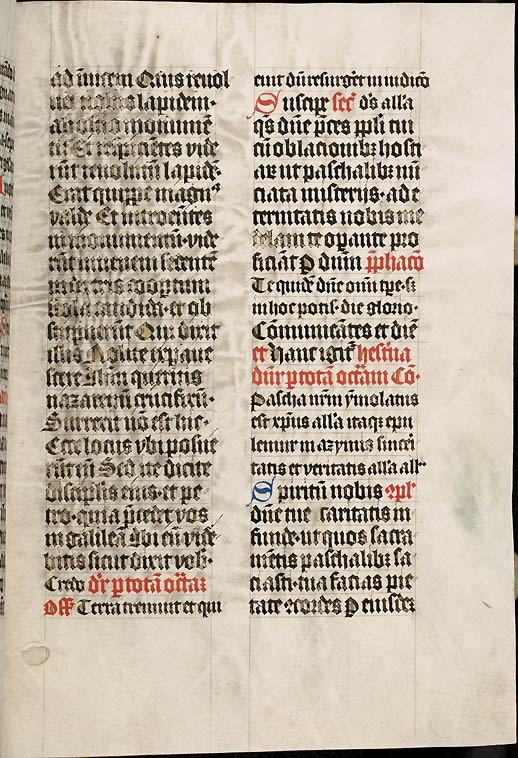 ad inuicem Quis reuol
uet nobis lapidem·
ab ostio monumē
ti Et respiciētes vide
rūt reuolutū lapidē·
Erat quippe magnꝰ
valde Et introeūtes
in monumentū· vide
rūt iuuenem sedentē
in dextris coopertum
stola candida· et ob
stupuerūt Qui dixit
illis Nolite expaue
scere Ihm queritis
nazarenū crucifixū·
Surrexit nō est hic·
Ecce locus vbi posue
rūt eū Sed ite dicite
discipłis eius· et pe
tro· quia p̄cedet vos
in galileā ibi eū vide
bitis sicut dixit vob̄·
Credo dr̄ p totā octā
Off Terra tremuit et qui
euit dū resurgēt in iudicō
Suscipe secr̄ ds̄ alla
qs̄ dn̄e p̄ces ppłi tui
cū oblacionibꝫ hosti
aꝝ ut paschalibꝫ ini
ciata misterijs· ad e
ternitatis nobis me
delam te operante pro
ficiāt P dnm̄ p̄phacō
Te quidē dn̄e omī tpe· sꝫ
in hoc potis· die glorio·
Cōmunicātes et diē
et Hanc igit̄ hec
dn̄r p totā octām Cō·
Pascha nr̄m ymolatus
est xp̄us alla itaqꝫ epu
lemur in azymis sincēi
tatis et veritatis alla alla
Spiritū nobis 9pl̄
dn̄e tue caritatis in
funde· ut quos sacra
mētis paschalibꝫ sa
ciasti· tua facias pie
tate 9cordes P eiusdeꝫ